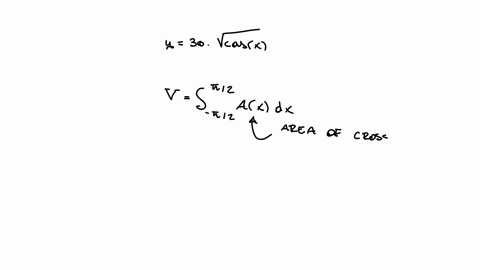 y = 30 · √cos(x)
V = ∫_{-π/2}^{π/2} A(x) dx
AREA OF CROSS